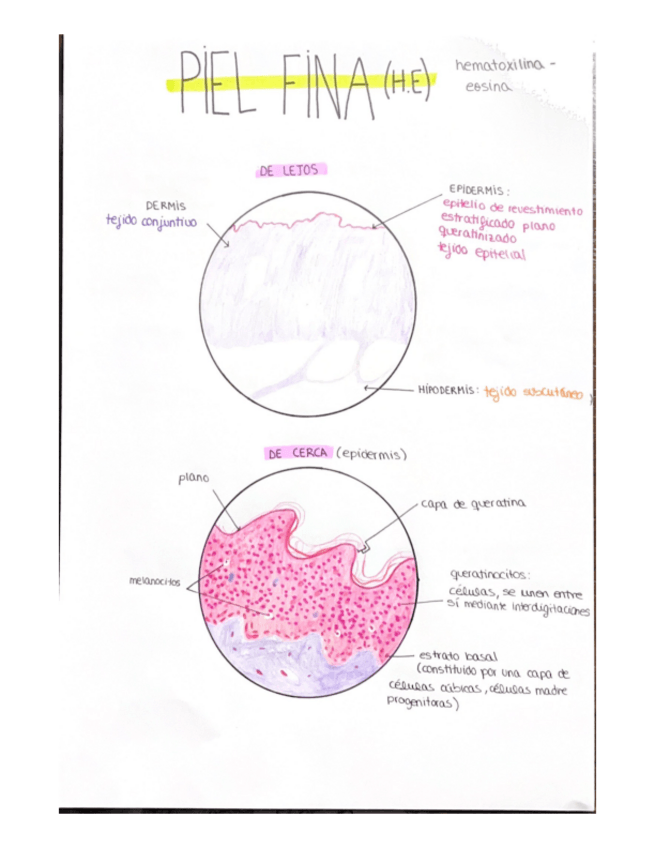 PIEL FINA (H.E)
hematoxilina -
eosina
DE LEJOS
DERMIS
tejido conjuntivo
EPIDERMIS:
epitelio de revestimiento
estratificado plano
queratinizado
tejido epitelial
HIPODERMIS: tejido subcutáneo
DE CERCA (epidermis)
plano
capa de queratina
melanocitos
queratinocitos:
células, se unen entre
sí mediante interdigitaciones
estrato basal
(constituido por una capa de
células cúbicas, células madre
progenitoras)